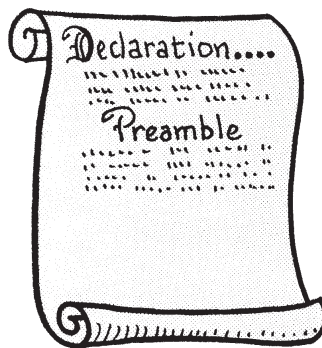 Declaration....
Preamble